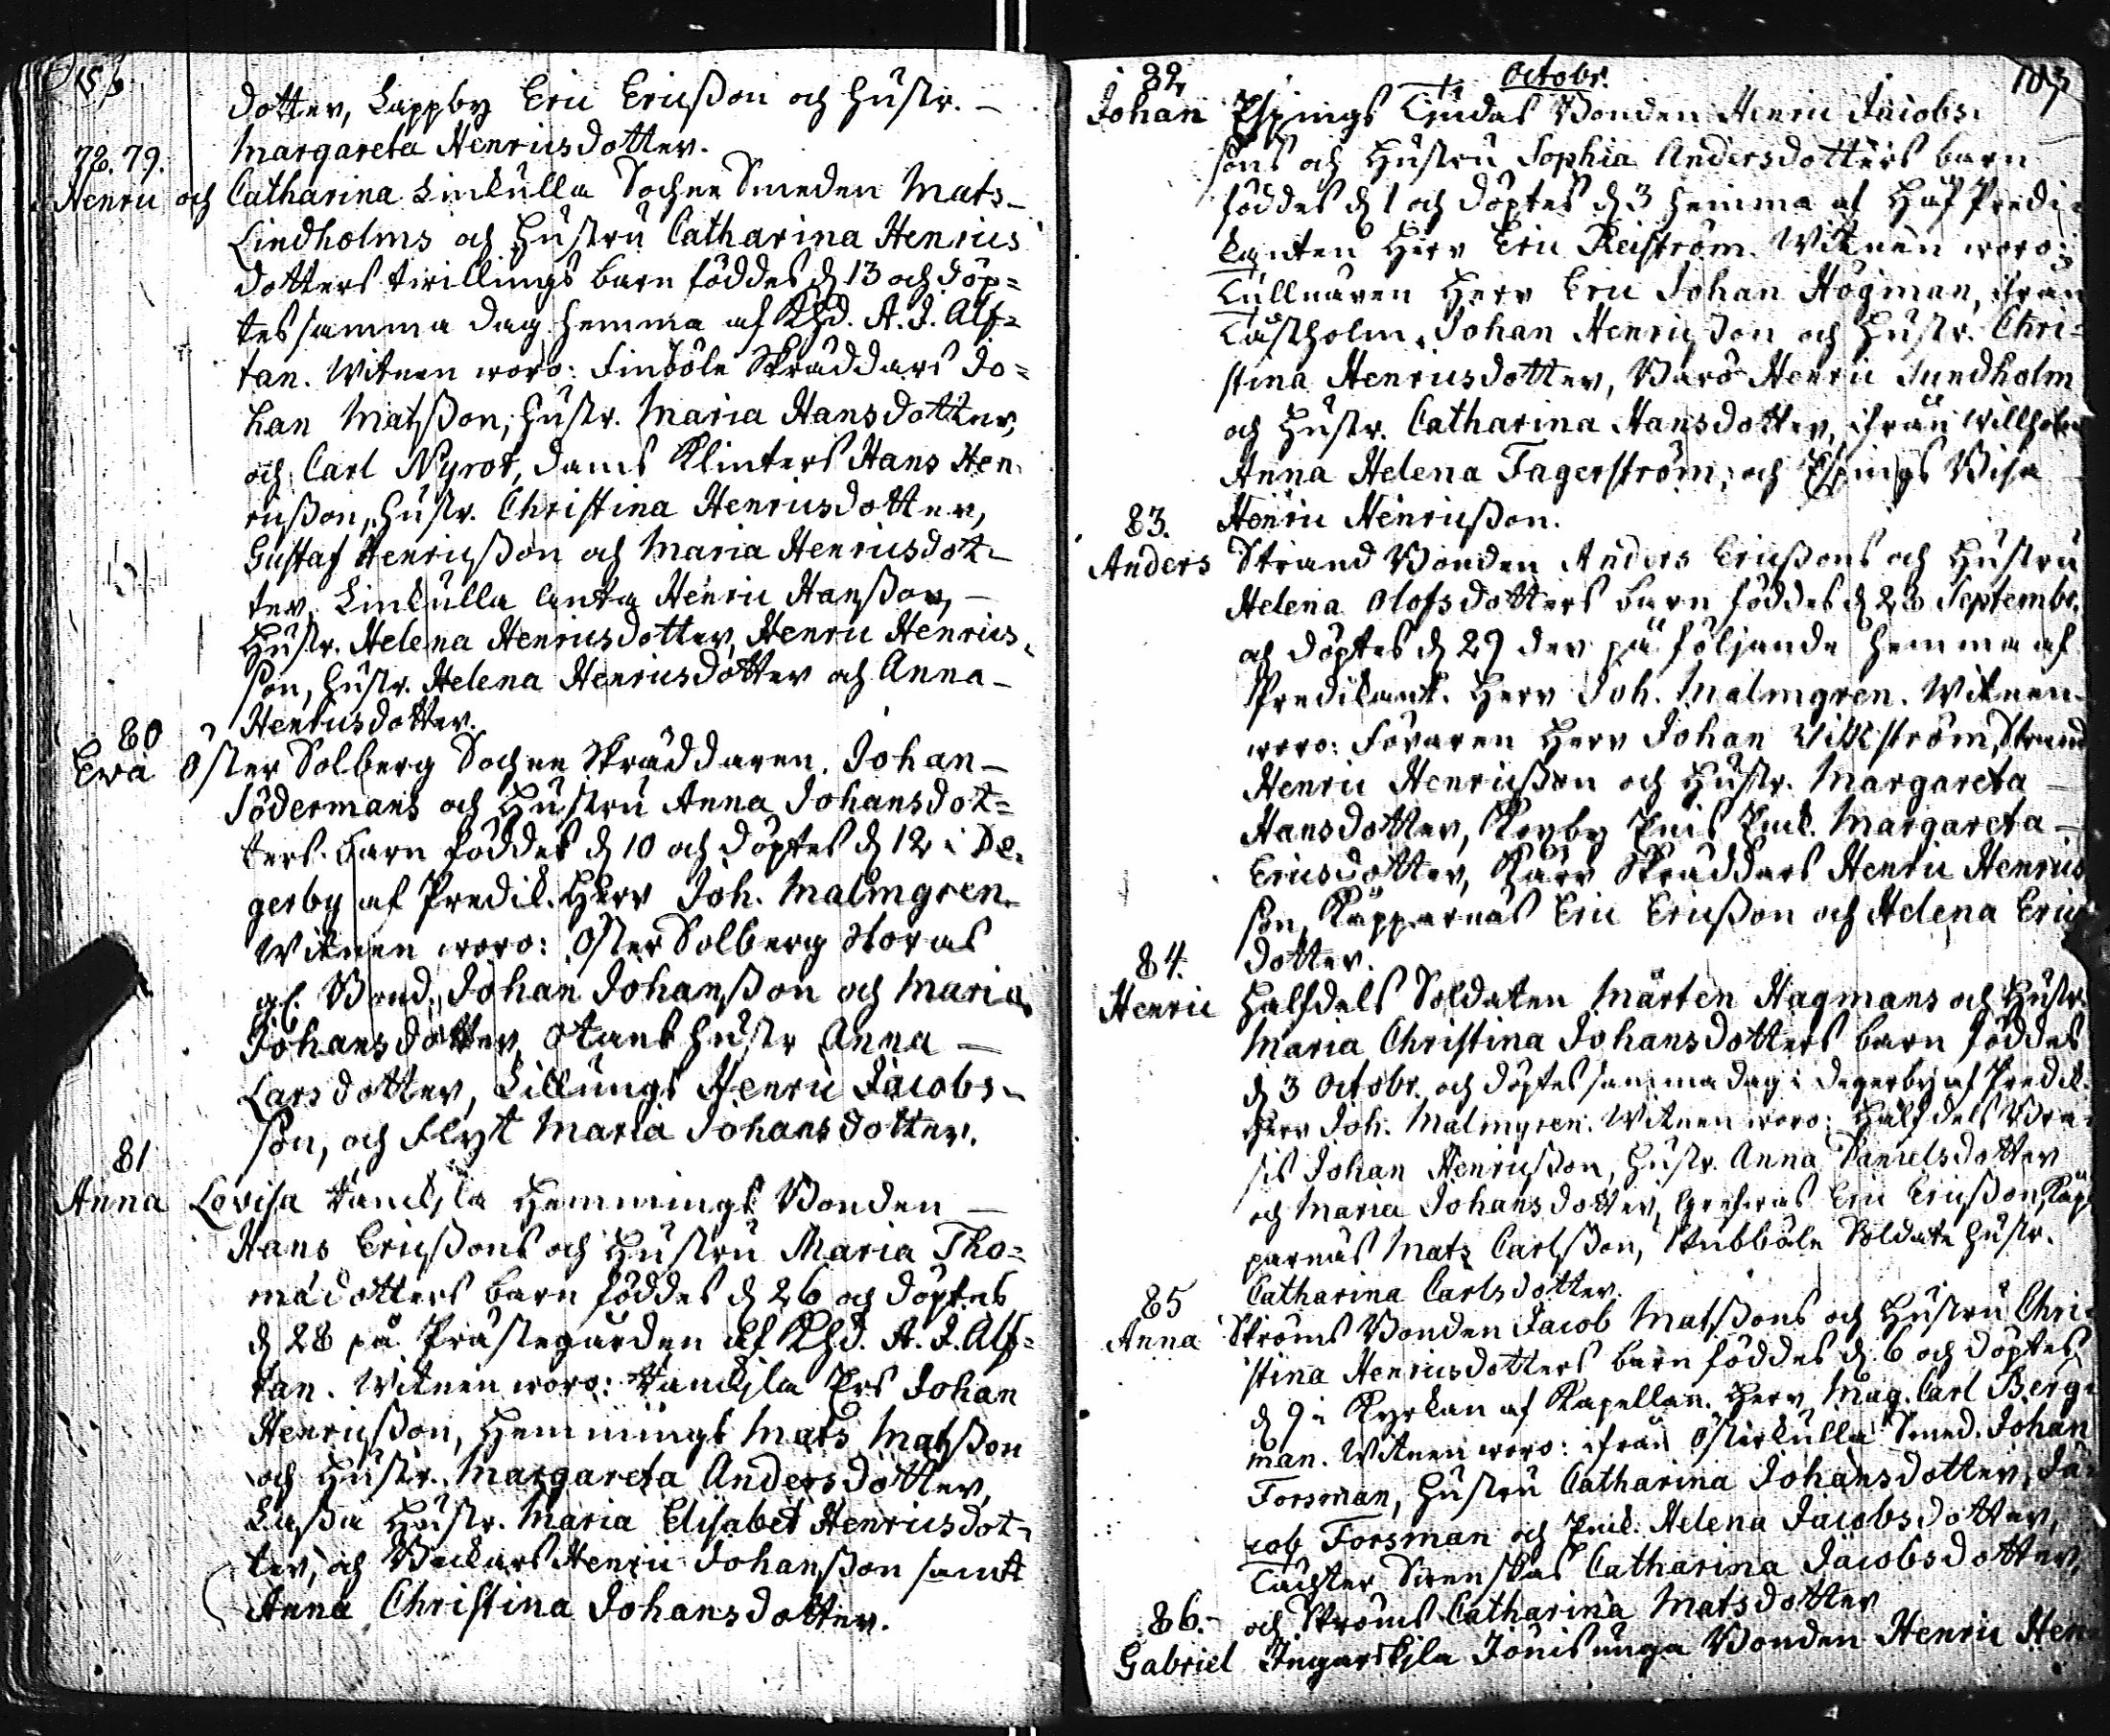 dotter, Lappby Eric Ericßon och Hustr. –
Margareta Henricsdotter.
78. 79.
Henric och Catharina Linkulla Sochne Smeden Mats
Lindholms och Hustru Catharina Henrics
dotters twillings barn föddes d 13 och döp=
tes samma dag hemma af Khd. A. J. Alf=
tan. Witnen woro: Finböle Skräddars Jo=
han Matsßon, Hustr. Maria Hansdotter,
och Carl Nyrot, Klinkers Hans Hen
ricßon, Hustr. Christina Henricsdotter,
Gustaf Henricßon och Maria Henricsdot=
ter, Linkulla Henric Hanßon, –
Hustr. Helena Henricsdotter, Henric Henrics
son, Hustr. Helena Henricsdotter och Anna –
Henricsdotter.
80
Eva Öster Solberg Sochne Skräddaren Johan –
Södermans och Hustru Anna Johansdot=
ters barn föddes d 10 och döptes d 12 i De
gerby af Predik. Herr Joh. Malmgren.
Witnen woro: Öster Solberg Storas
gl. Bond. Johan Johanßon och Maria
Johansdotter, Hustr Anna –
Larsdotter, Lillungs Henric Jacobs=
son, och Flyt Maria Johansdotter.
81
Anna Lovisa Hemmings Bonden –
Hans Ericßons och Hustru Maria Tho=
madotters barn föddes d 26 och döptes
d 28 på Prästegården af Khd. A. J. Alf=
tan. Witnen woro: Ers Johan
Henricßon, Hemmings Mats Matsßon
och Hustr. Margareta Andersdotter,
Hustr. Maria Elisabet Henricsdot=
ter, och Backars Henric Johanßon samt
Anna Christina Johansdotter.
Octobr.
82
Johan Espings Bonden Henric Jacobs
sons och Hustru Sophia Andersdotters barn
föddes d 1 och döptes d 3 hemma af Predi=
kanten Herr Eric Reiström. Witnen woro:
Tullnären Herr Eric Johan Högman, ifrån
Johan Henricßon och Hustr. Chri=
stina Henricsdotter, Barö Henric Sundholm
och Hustr. Catharina Hansdotter, ifrån
Anna Helena Fagerström, och Espings
Henric Henricßon.
83.
Anders Strand Bonden Anders Ericßons och Hustru
Helena Olofsdotters barn föddes d 28 Septembr.
och döptes d 29 der på följande hemma af
Predikant. Herr Joh. Malmgren. Witnen
woro: Herr Johan Strand
Henric Henricßon och Hustr. Margareta –
Hansdotter, Pig. Margareta –
Ericsdotter, Kärr Skräddars Henric Henrics
son, Käpparnäs Eric Ericßon och Helena Erics
dotter.
84.
Henric Halfdels Soldaten Mårten Hagmans och Hustr.
Maria Christina Johansdotters barn föddes
d 3 Octobr. och döptes samma dag i Degerby af Predik.
Herr Joh. Malmgren. Witnen woro: Halfdels
Johan Henricßon, Hustr. Anna Danielsdotter
och Maria Johansdotter, Eric Ericßon, Käp
parnäs Mats Carlsßon, Stubböle Soldats Hustr.
Catharina Carlsdotter.
85
Anna Ströms Bonden Jacob Matsßons och Hustru Chri=
stina Henricsdotters barn föddes d. 6 och döptes
d 9 i Kyrkan af Kapellan. Herr Mag. Carl Berg=
man. Witnen woro: ifrån Österkulla Smed. Johan
Forsman, Hustru Catharina Johansdotter, Ja=
cob Forsman och Helena Jacobsdotter,
Svenskas Catharina Jacobsdotter,
och Ströms Catharina Matsdotter
86.
Gabriel Ingarskila Bonden Henric Hen